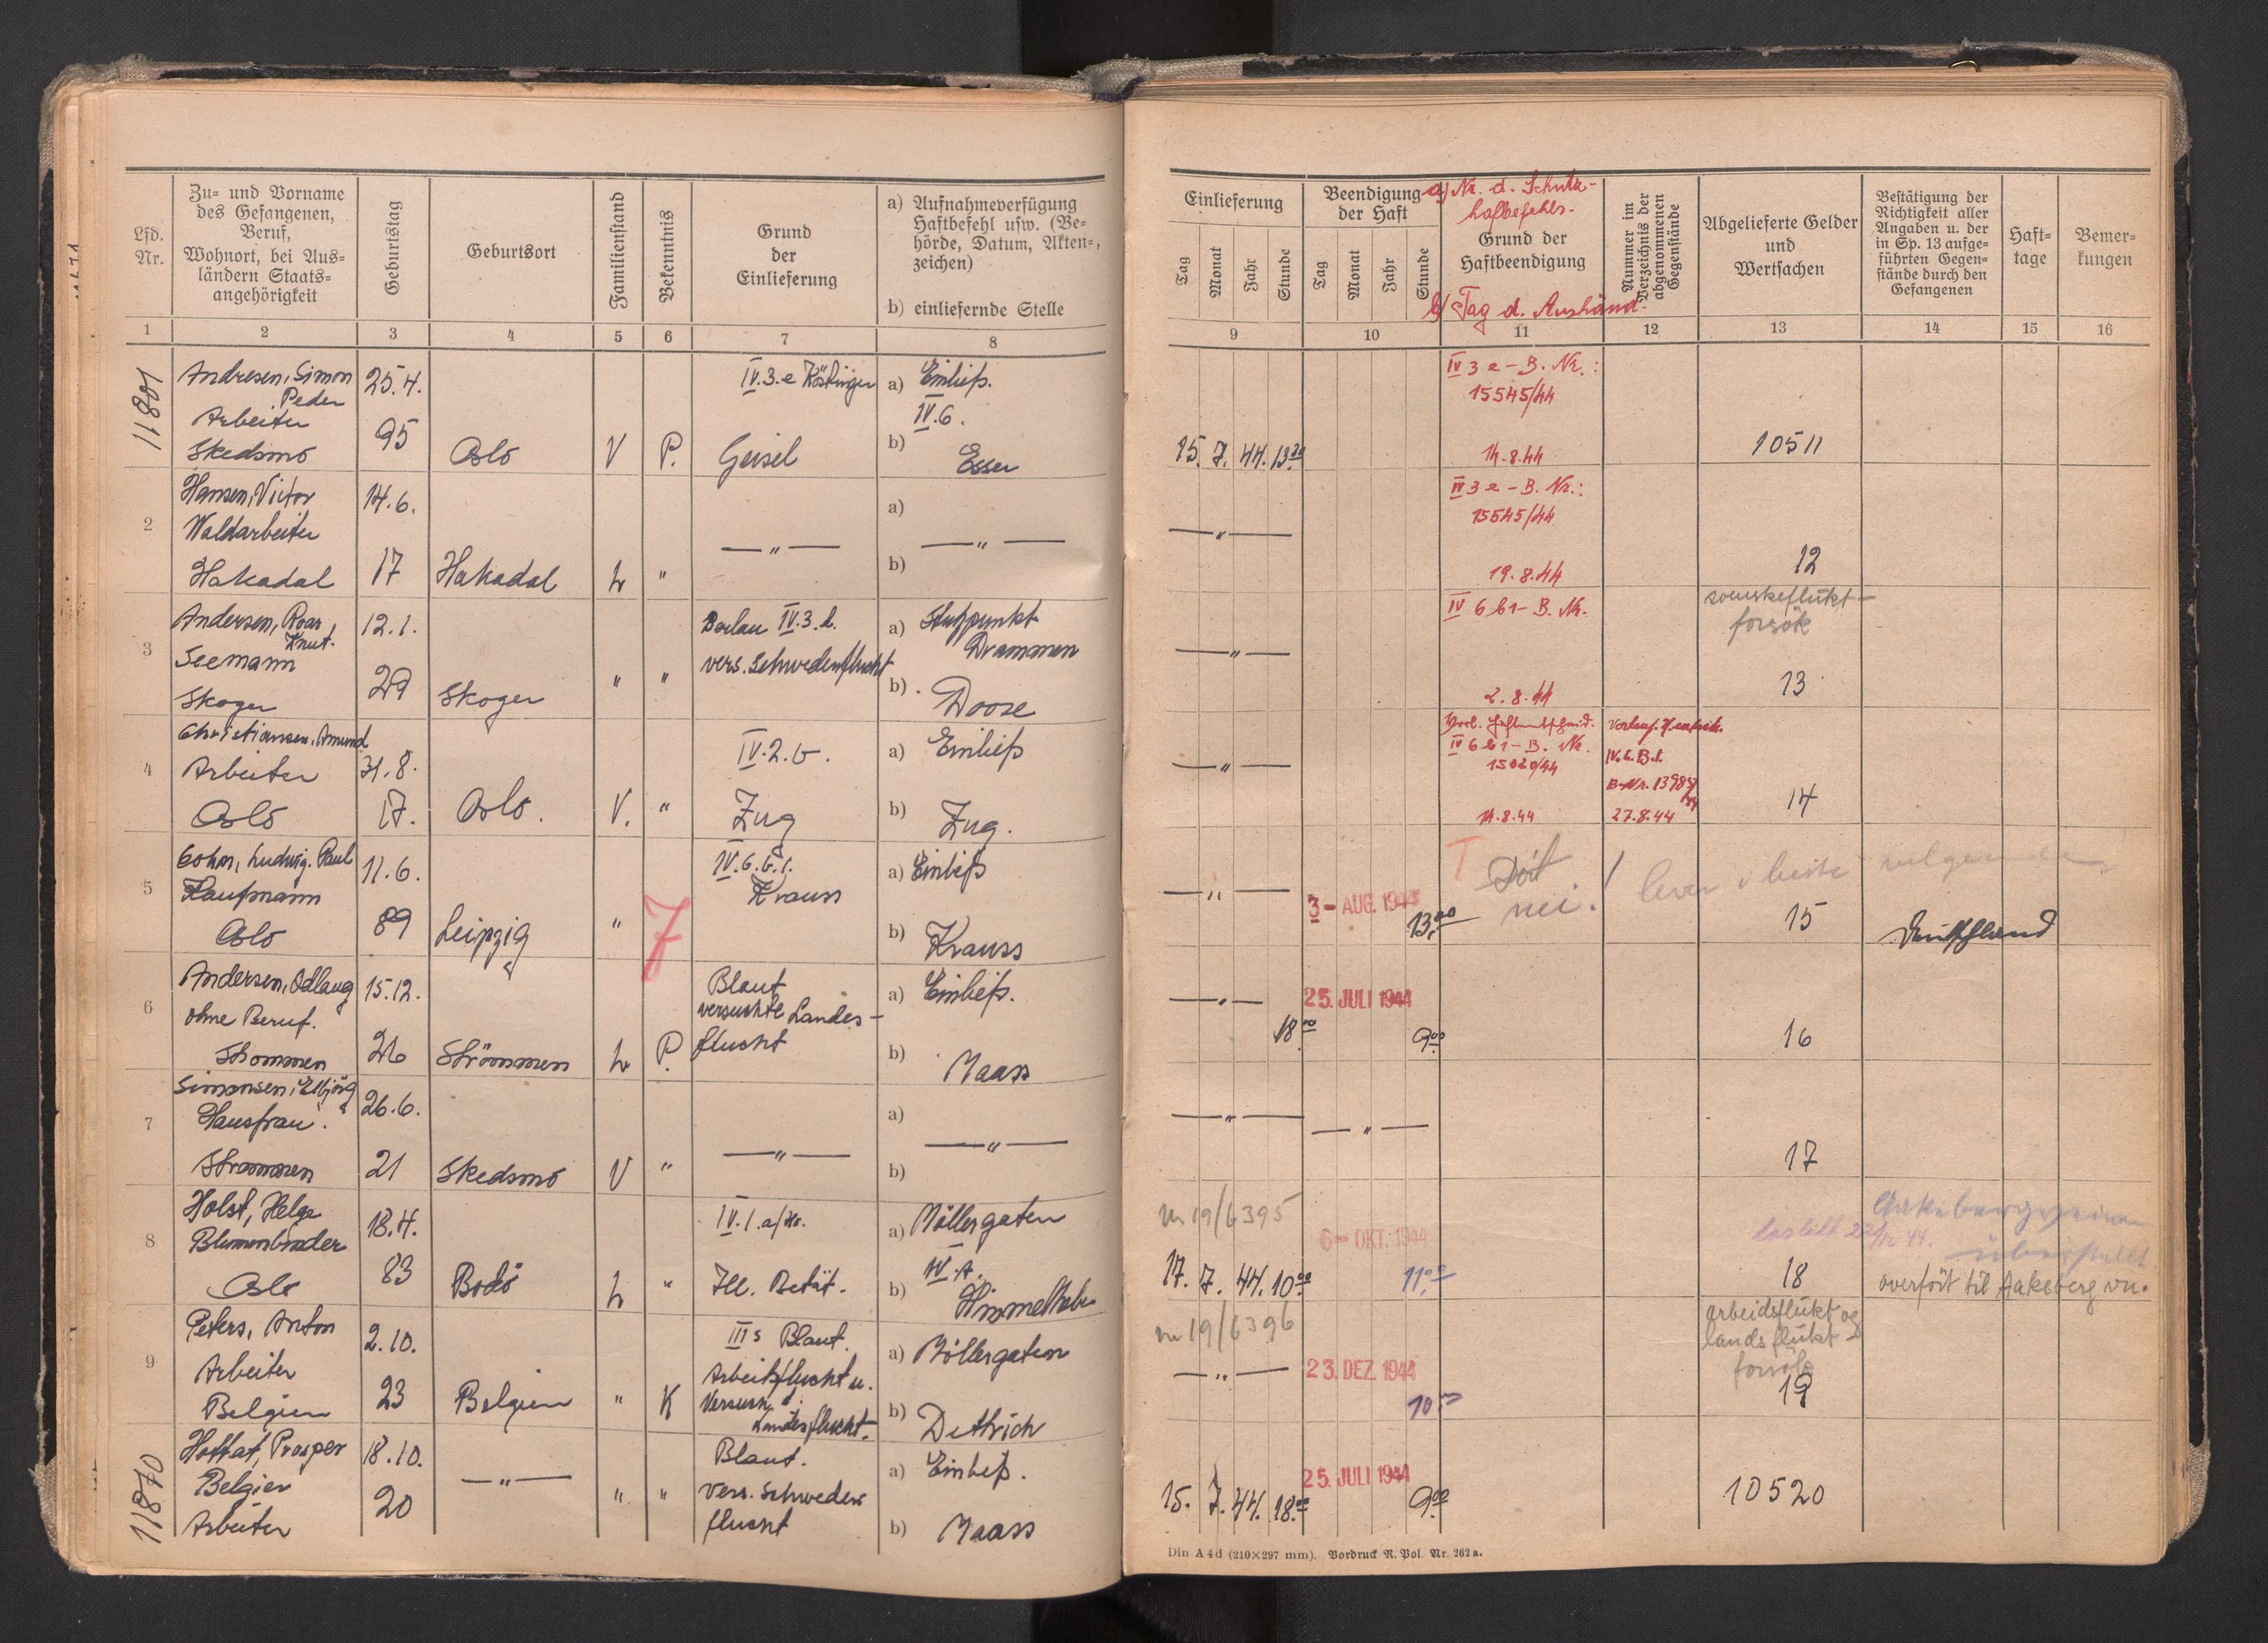 Lfd. Nr.
Zu- und Vorname des Gefangenen, Beruf, Wohnort, bei Ausländern Staatsangehörigkeit
Geburtstag
Geburtsort
Familienstand
Bekenntnis
Grund der Einlieferung
a) Aufnahmeverfügung Haftbefehl usw. (Behörde, Datum, Aktenzeichen)
b) einliefernde Stelle
1 2 3 4 5 6 7 8
Andresen, Simon
Peder
25.4.
IV.3.e
a) Einlief.
11801
Arbeiter
IV.6.
Skedsmo
95
Oslo
V
P.
Geisel
b) Esser
Hansen, Victor
14.6.
a)
2
Waldarbeiter
— " —
— " —
Hakadal
17
Hakadal
L
"
b)
Andersen, Roar
Knut.
12.1.
IV.3.
a) Stützpunkt
Drammen
3
Seemann
vers. Schwedenflucht
Skoger
29
Skoger
"
"
b) Doose
Christiansen, Amund
4
Arbeiter
31.8.
IV.2.
a) Einlief
Oslo
17.
Oslo.
V.
"
Zug
b) Zug.
Cohn, Ludwig. Paul
11.6.
IV.6.b.1.
a) Einlief
5
Kaufmann
Krauss
Oslo
89
Leipzig
"
b) Krauss
Andersen, Odlaug
15.12.
Blaut
a) Einlief.
6
ohne Beruf.
versuchte Landes-
flucht
Strommen
26
Strömmen
L
P.
b) Maass
Simonsen, Elbjörg
26.6.
a)
7
Hausfrau.
— " —
— " —
Strommen
21
Skedsmo
V
"
b)
Holst, Helge
18.4.
IV.1.a
a) Möllergaten
8
Blumenbinder
Oslo
83
Bodö
L
"
Ill. Betät.
b)
Peters, Anton
2.10.
III s Blaut.
a) Möllergaten
9
Arbeiter
Arbeitsflucht u.
Versuch d.
Landesflucht.
Belgien
23
Belgien
"
K
b) Dettrich
Hottat, Prosper
18.10.
Blaut.
a) Einlief.
11870
Belgier
— " —
vers. Schweden
flucht
Arbeiter
20
"
"
b) Maass
Einlieferung
Tag Monat Jahr Stunde
Beendigung der Haft
Tag Monat Jahr Stunde
a) Nr. d. Schutz-
hafbefehls.
Grund der Haftbeendigung
b) Tag d. Aushänd.
Nummer im Verzeichnis der abgenommenen Gegenstände
Abgelieferte Gelder und Wertsachen
Bestätigung der Richtigkeit aller Angaben u. der in Sp. 13 aufgeführten Gegenstände durch den Gefangenen
Hafttage
Bemerkungen
9 10 11 12 13 14 15 16
IV 3 e – B. Nr.:
15545/44
15. 7. 44. 13.30
14.8.44
10511
IV 3 e – B. Nr.:
15545/44
— " —
19.8.44
12
IV 6 b1 – B. Nr.
svenskeflukt-
forsök
— " —
2.8.44
13
IV 6 b1 – B. Nr.
15020/44
— " —
14.8.44
27.8.44
14
— " —
3 – AUG. 1944
13.00
nei!
15
Deutschland
— " —
25. JULI 1944
18.00
9.00
16
— " —
— " —
17
19/6395
6 – OKT. 1944
überstellt
17. 7. 44. 10.00
11.00
18
overfört til Aakeberg vn.
19/6396
arbeidsflukt og
landsflukt
forsök
— " —
23. DEZ. 1944
10.00
19
25. JULI 1944
15. 7. 44. 18.00
9.00
10520
Din A 4d (210×297 mm). Vordruck R. Pol. Nr. 262 a.